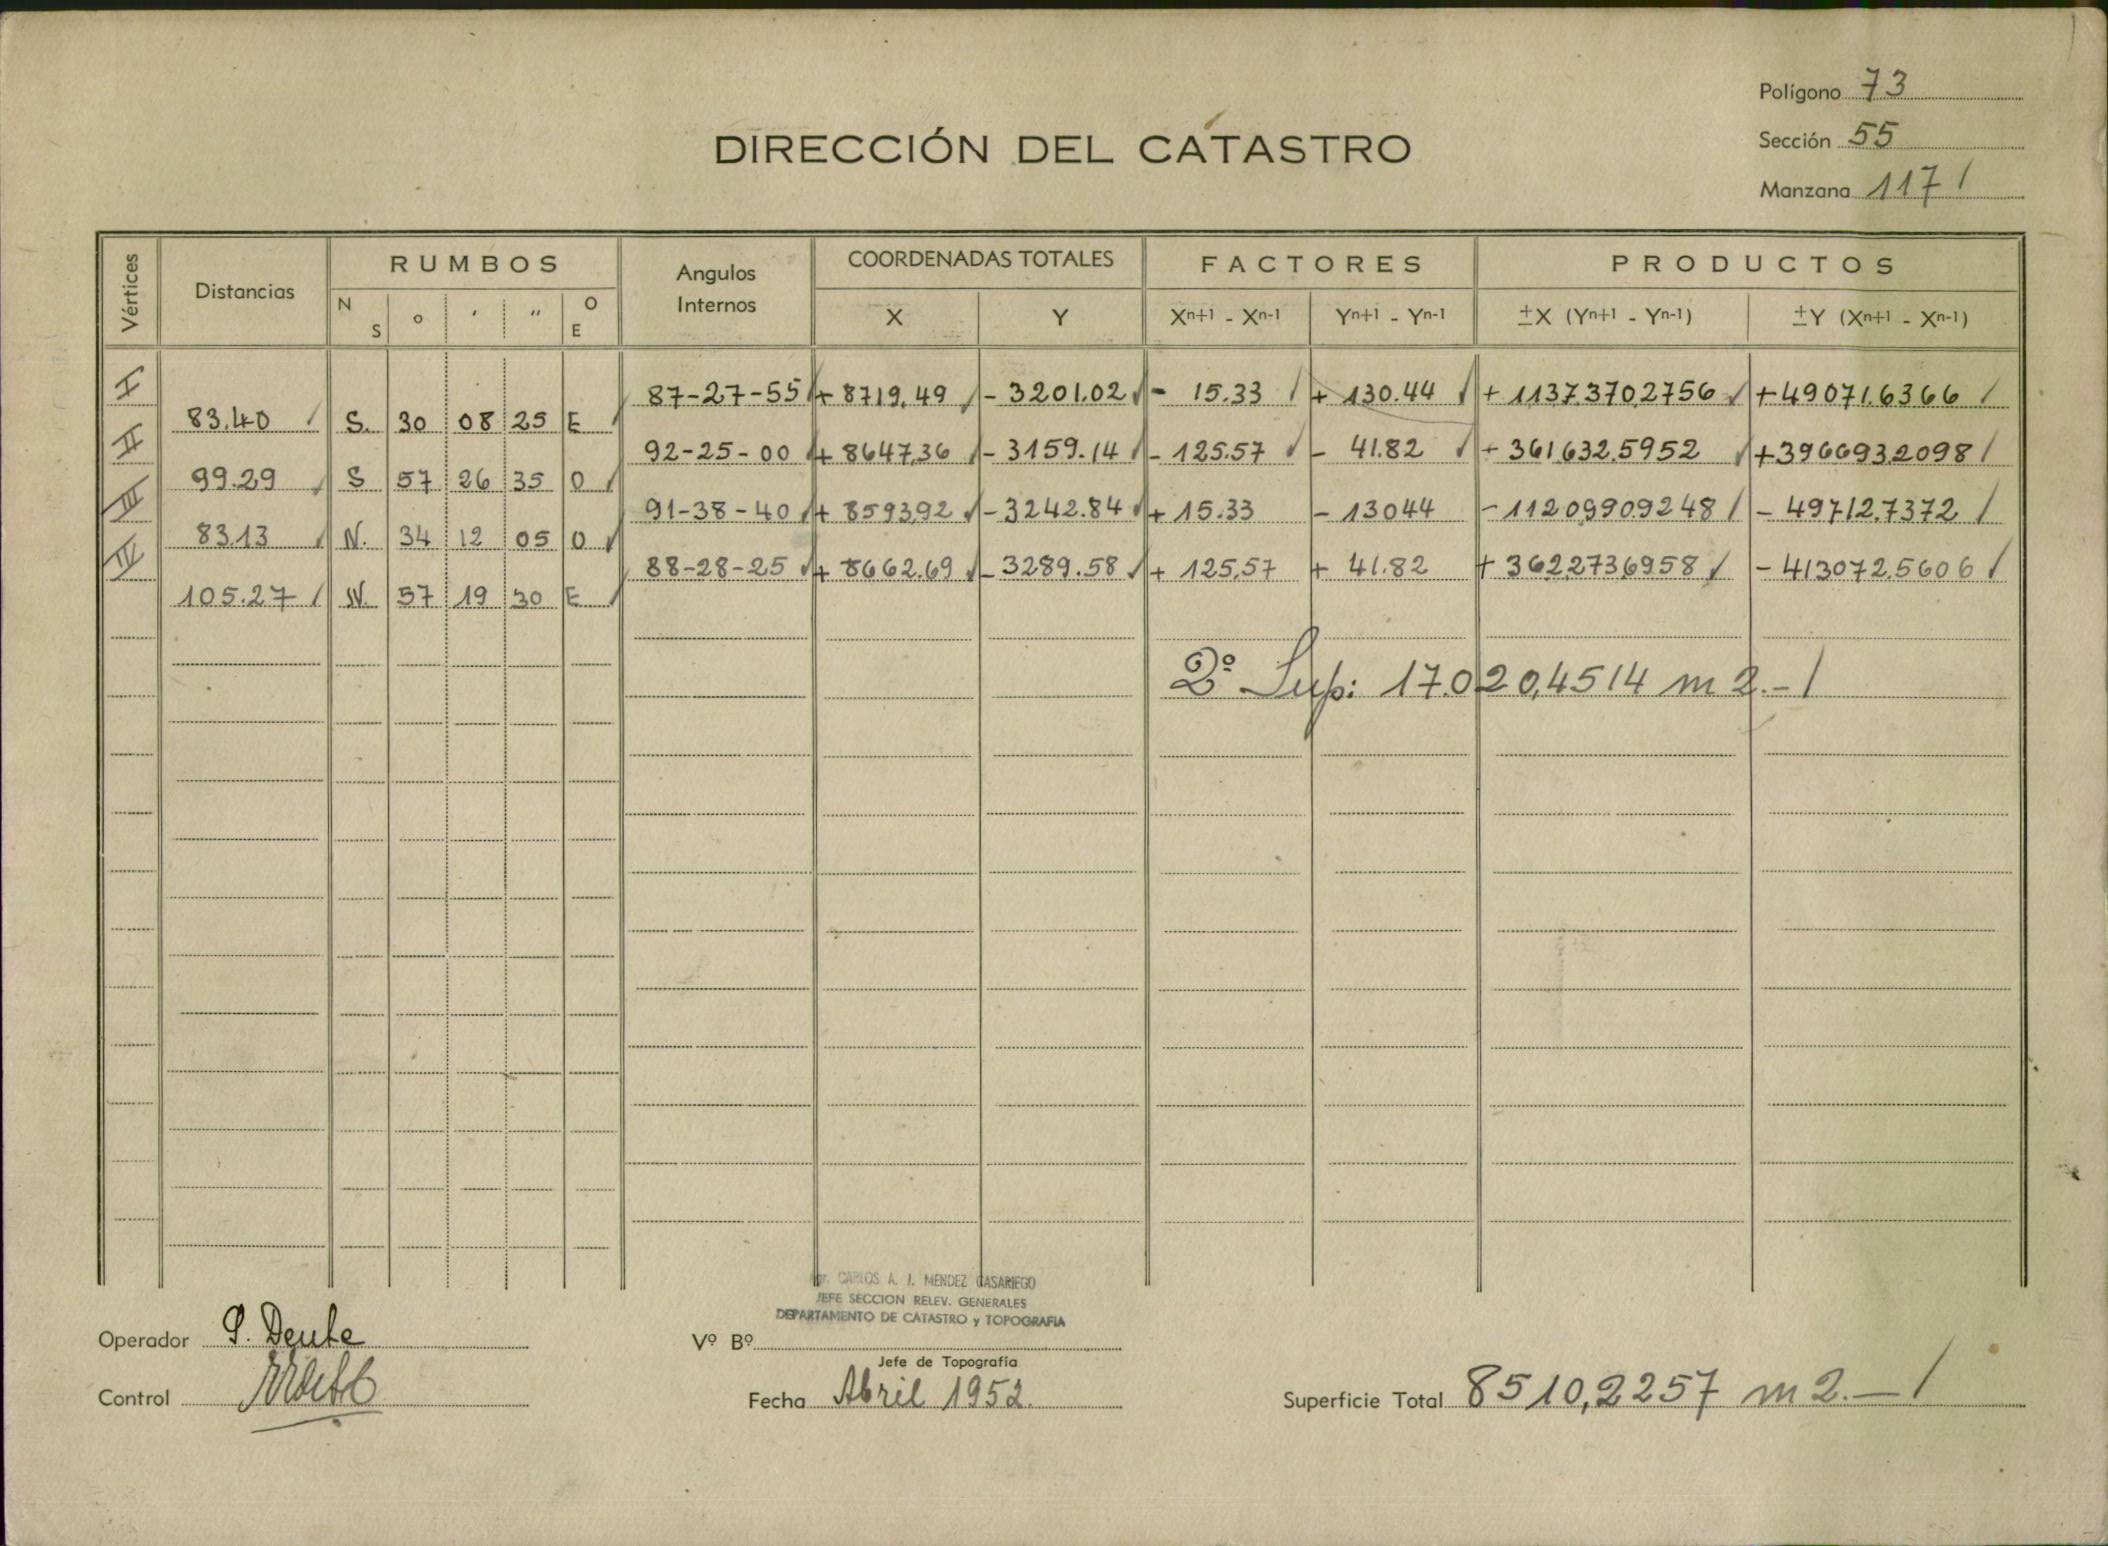 Polígono 73
DIRECCIÓN DEL CATASTRO
Sección 55
Manzana 1171
Vértices Distancias RUMBOS Angulos Internos COORDENADAS TOTALES FACTORES PRODUCTOS
N S ° ' " O E X Y Xn+1 - Xn-1 Yn+1 - Yn-1 ±X (Yn+1 - Yn-1) ±Y (Xn+1 - Xn-1)
I 87-27-55 + 8719,49 - 3201.02 - 15.33 + 130.44 + 1137370,2756 + 49071,6366
83,40 S. 30 08 25 E
II 92-25-00 + 8647,36 - 3159.14 - 125.57 - 41.82 + 361632,5952 + 396693,2098
99.29 S 57 26 35 O
III 91-38-40 + 8593,92 - 3242.84 + 15.33 - 13044 - 1120990,9248 - 49712,7372
83.13 N. 34 12 05 O
IV 88-28-25 + 8662.69 - 3289.58 + 125,57 + 41.82 + 362273,6958 - 413072,5606
105.27 N. 57 19 30 E
2º Sup: 17.020,4514 m2.-
gr. CARLOS A. J. MENDEZ CASARIEGO
JEFE SECCION RELEV. GENERALES
DEPARTAMENTO DE CATASTRO y TOPOGRAFIA
Operador Vº Bº
Jefe de Topografía
Control Fecha Abril 1952. Superficie Total 8510,2257 m2.-